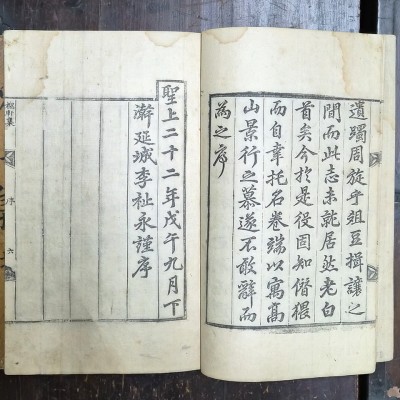 遺躅周旋乎俎豆揖讓之
間而此志未就居然老白
首矣今於是役固知僭猥
而自幸托名卷端以寓高
山景行之慕遂不敢辭而
為之序
聖上二十二年戊午九月下
澣延城李祉永謹序
序
六